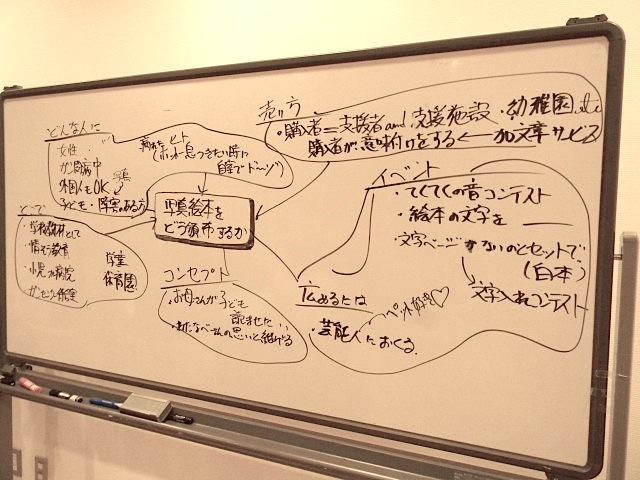 どんな人に
女性
ガン闘病中
外国人もOK
子ども・障害のある方
ヒト
(ホッと一息つきたい時に
自室でド〜ゾ)
売り方
・購入者=支援者and支援施設・幼稚園etc
購入者が意味付けをする←加文章サービス
写真絵本を
どう頒布するか
どこで
・学校教材として
・情そう教育
・小児 病院
・ガンセンター
学童
保育園
コンセプト
・お母さんが子ども
読ませたい
・わたなべさんの思いと継げる
広めるには
ペット好き♡
・芸能人におくる
イベント
・てくてくの音コンテスト
・絵本の文字を
・文字ページがないのとセットで
(白本)
文字入れコンテスト